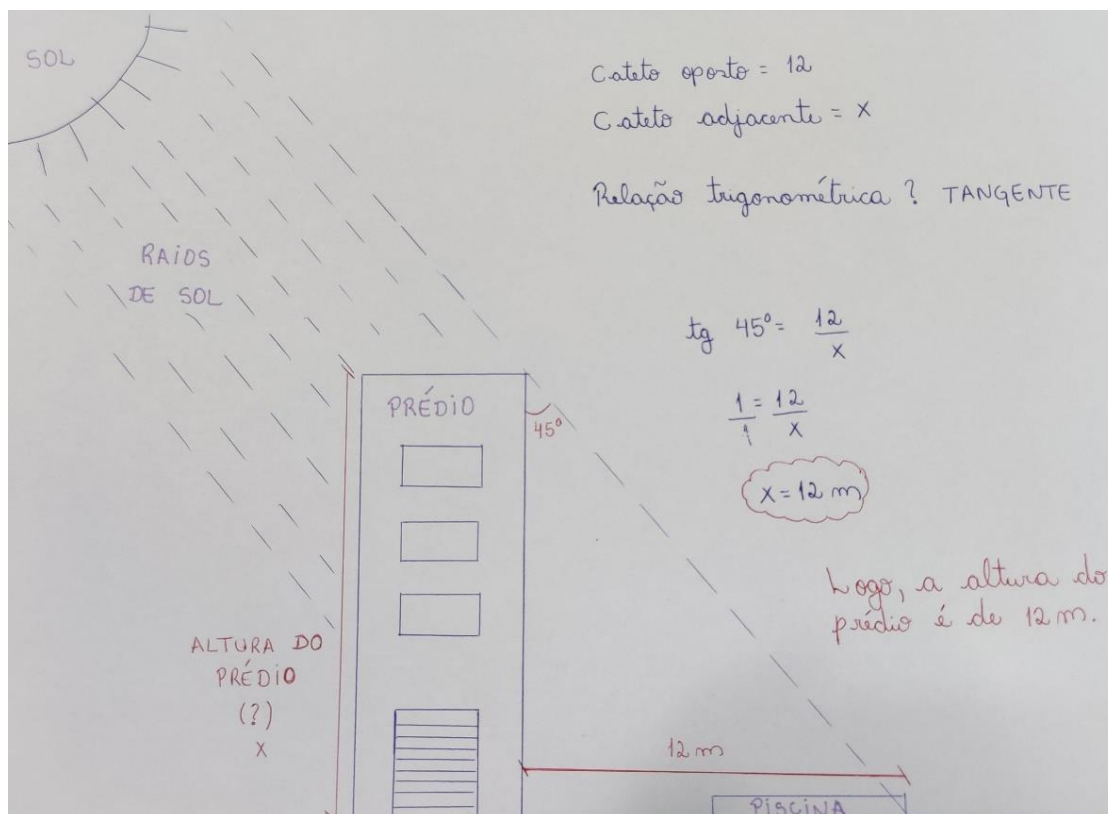 SOL
RAIOS
DE SOL
PRÉDIO
45º
ALTURA DO
PRÉDIO
(?)
X
12 m
PISCINA
Cateto oposto = 12
Cateto adjacente = X
Relação trigonométrica ? TANGENTE
tg 45º = 12
X
1 = 12
1 X
X = 12 m
Logo, a altura do
prédio é de 12 m.